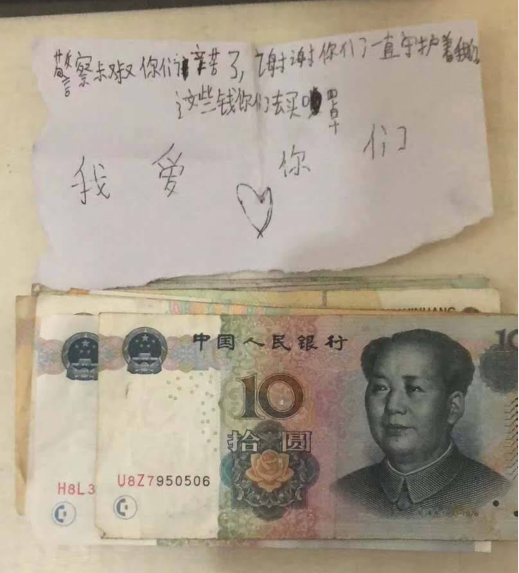 警察叔叔你们辛苦了，谢谢你们一直守护着我们
这些钱你们去买口罩
我爱你们
中国人民银行
10
拾圆
H8L3
U8Z7950506
10